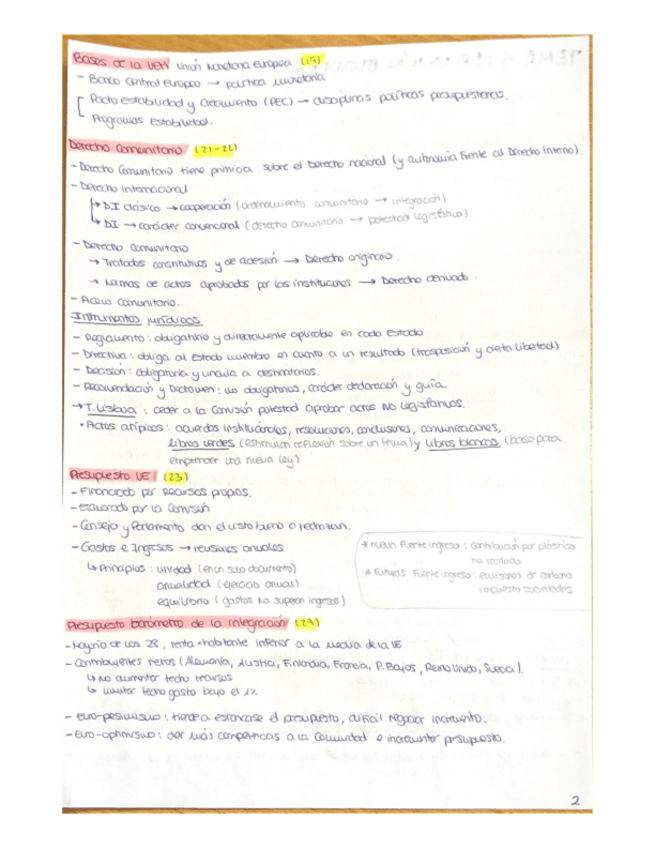 Bases de la UEM Unión Monetaria Europea (19)
- Banco Central Europeo → política monetaria
[ Pacto estabilidad y Crecimiento (PEC) → disciplinas políticas presupuestarias.
Programas Estabilidad.
Derecho Comunitario (21-22)
- Derecho Comunitario tiene primicia sobre el Derecho nacional (y autonomía frente al Derecho Interno).
- Derecho Internacional
↳ DI clásico → cooperación (ordenamiento comunitario → integración)
↳ DI → carácter convencional (derecho comunitario → potestad legislativa)
- Derecho comunitario
→ Tratados constitutivos y de adhesión → Derecho originario.
→ Normas de actos aprobados por las instituciones → Derecho derivado.
- Acervo comunitario.
Instrumentos jurídicos
- Reglamento: obligatorio y directamente aplicable en cada Estado
- Directiva: obliga al Estado miembro en cuanto a un resultado (trasposición y cierta libertad)
- Decisión: obligatoria y vincula a destinatarios.
- Recomendación y Dictamen: no obligatorios, carácter declaración y guía.
→ T. Lisboa: ceder a la Comisión potestad aprobar actos NO legislativos.
• Actos atípicos: acuerdos institucionales, resoluciones, conclusiones, comunicaciones,
libros verdes (estimulan reflexión sobre un tema) y libros blancos (base para
emprender una nueva ley)
Presupuesto UE (23)
- Financiado por Recursos propios.
- Elaborado por la Comisión
- Consejo y Parlamento dan el visto bueno o rechazan.
- Gastos e Ingresos → revisiones anuales
↳ Principios: unidad (en un solo documento)
anualidad (ejercicio anual)
equilibrio (gastos NO superan ingresos)
* nueva fuente ingreso: contribución por plástico
no reciclado
* Futuras fuente ingreso: emisiones de carbono
impuesto sociedades
Presupuesto barómetro de la integración (27)
- Mayoría de los 28, renta × habitante inferior a la media de la UE
- Contribuyentes netos (Alemania, Austria, Finlandia, Francia, P. Bajos, Reino Unido, Suecia).
↳ No aumentar techo recursos
↳ limitar techo gasto bajo el 1%
- Euro-pesimismo: tiende a estancarse el presupuesto, difícil negociar incremento.
- Euro-optimismo: dar más competencias a la Comunidad e incrementar presupuesto.
2